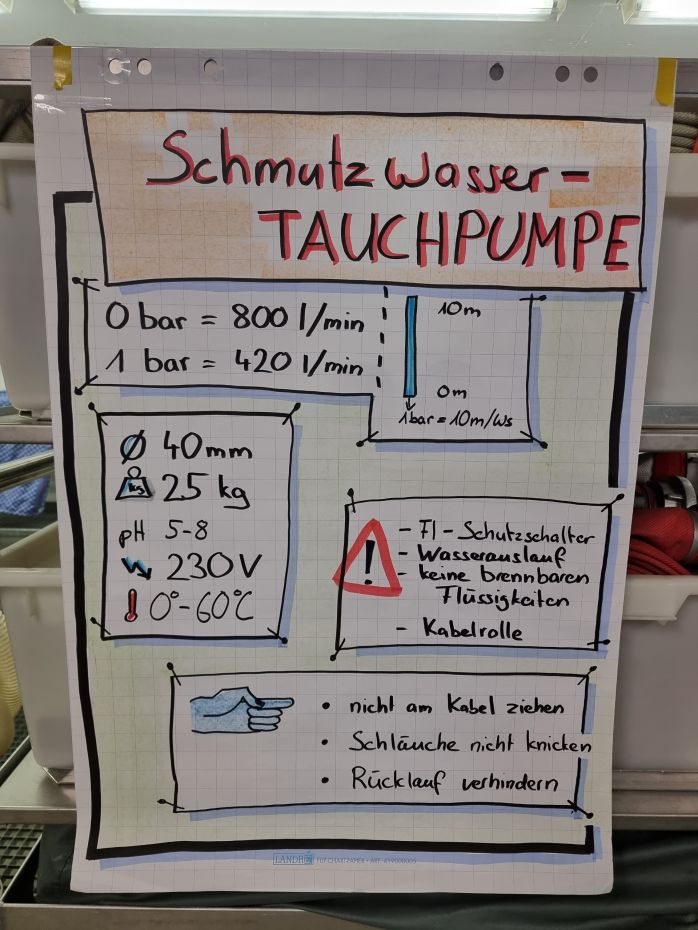 Schmutzwasser-
TAUCHPUMPE
0 bar = 800 l/min
1 bar = 420 l/min
10m
0m
1bar = 10m/Ws
Ø 40mm
kg 25 kg
pH 5-8
230V
0°-60°C
! - FI-Schutzschalter
- Wasserauslauf
- keine brennbaren
Flüssigkeiten
- Kabelrolle
• nicht am Kabel ziehen
• Schläuche nicht knicken
• Rücklauf verhindern
LANDRÉ FLIPCHARTPAPIER • ART.